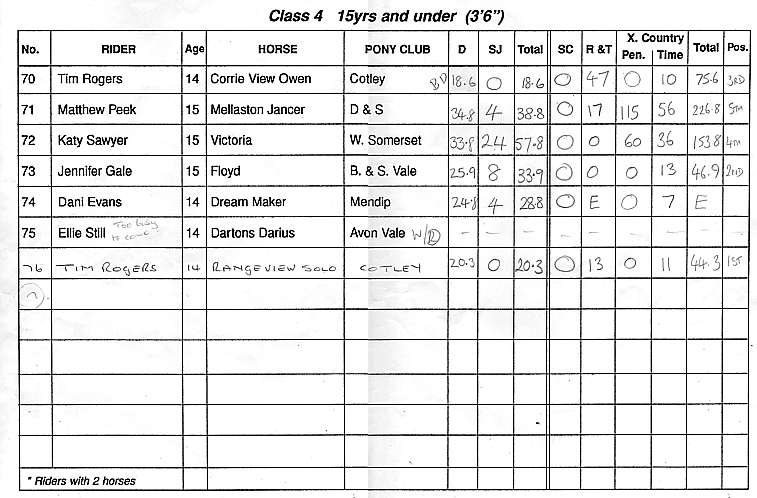 Class 4 15yrs and under (3'6")
No. RIDER Age HORSE PONY CLUB D SJ Total SC R &T X. Country Pen. Time Total Pos.
70 Tim Rogers 14 Corrie View Owen Cotley 18.6 0 18.6 0 47 0 10 75.6 3RD
71 Matthew Peek 15 Mellaston Jancer D & S 34.8 4 38.8 0 17 115 56 226.8 5TH
72 Katy Sawyer 15 Victoria W. Somerset 33.8 24 57.8 0 0 60 36 153.8 4TH
73 Jennifer Gale 15 Floyd B. & S. Vale 25.9 8 33.9 0 0 0 13 46.9 2ND
74 Dani Evans 14 Dream Maker Mendip 24.8 4 28.8 0 E 0 7 E
75 Ellie Still Too busy to come 14 Dartons Darius Avon Vale W/D - - - - - - - -
76 TIM ROGERS 14 RANGEVIEW SOLO COTLEY 20.3 0 20.3 0 13 0 11 44.3 1ST
* Riders with 2 horses